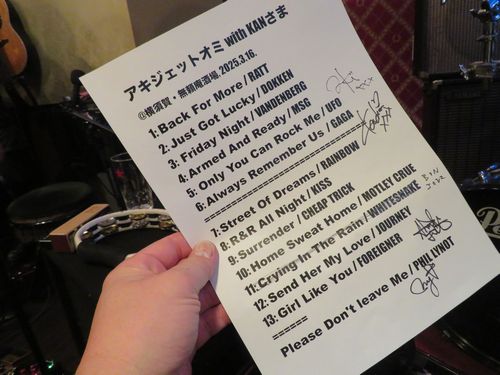 アキジェットオミ with KANさま
@横須賀・無頼庵酒場. 2025.3.16.
1: Back For More / RATT
2: Just Got Lucky / DOKKEN
3: Friday Night / VANDENBERG
4: Armed And Ready / MSG
5: Only You Can Rock Me / UFO
6: Always Remember Us / GAGA
==============================
7: Street Of Dreams / RAINBOW
8: R&R All Night / KISS
9: Surrender / CHEAP TRICK
10: Home Sweat Home / MOTLEY CRUE
11: Crying In The Rain / WHITESNAKE
12: Send Her My Love / JOURNEY
13: Girl Like You / FOREIGNER
=====
Please Don't leave Me / PHIL LYNOT